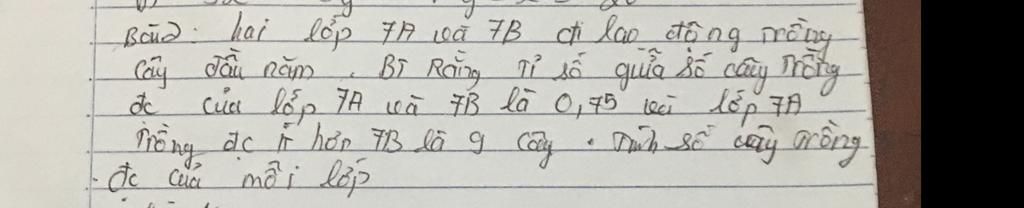 Bài 2: hai lớp 7A và 7B đi lao động trồng
cây đầu năm. Bt Rằng Tỉ số giữa số cây Trồng
đc của lớp 7A và 7B là 0,75 và lớp 7A
Trồng đc ít hơn 7B là 9 cây. Tính số cây trồng
đc của mỗi lớp